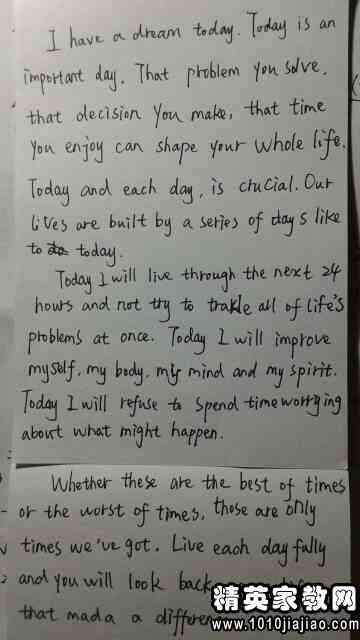 I have a dream today. Today is an
important day. That problem you solve,
that decision you make, that time
you enjoy can shape your whole life.
Today and each day, is crucial. Our
lives are built by a series of days like
to today.
Today I will live through the next 24
hours and not try to trakle all of life's
problems at once. Today I will improve
myself, my body, my mind and my spirit.
Today I will refuse to spend time worrying
about what might happen.
Whether these are the best of times
or the worst of times, those are only
times we've got. Live each day fully
and you will look back
that mad a difference
精英家教网
www.1010jiajiao.com